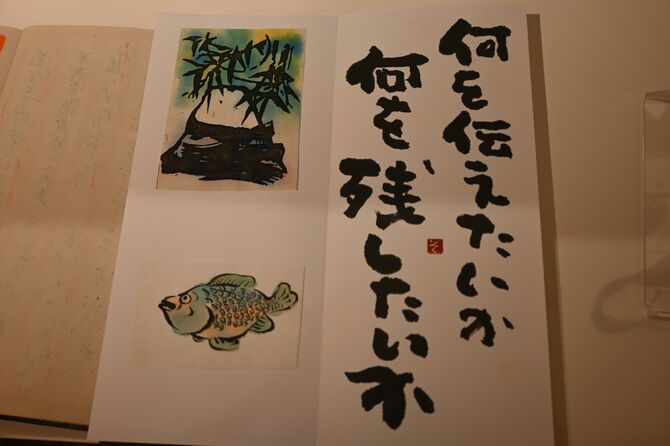 何を伝えたいか
何を残したいか
そ